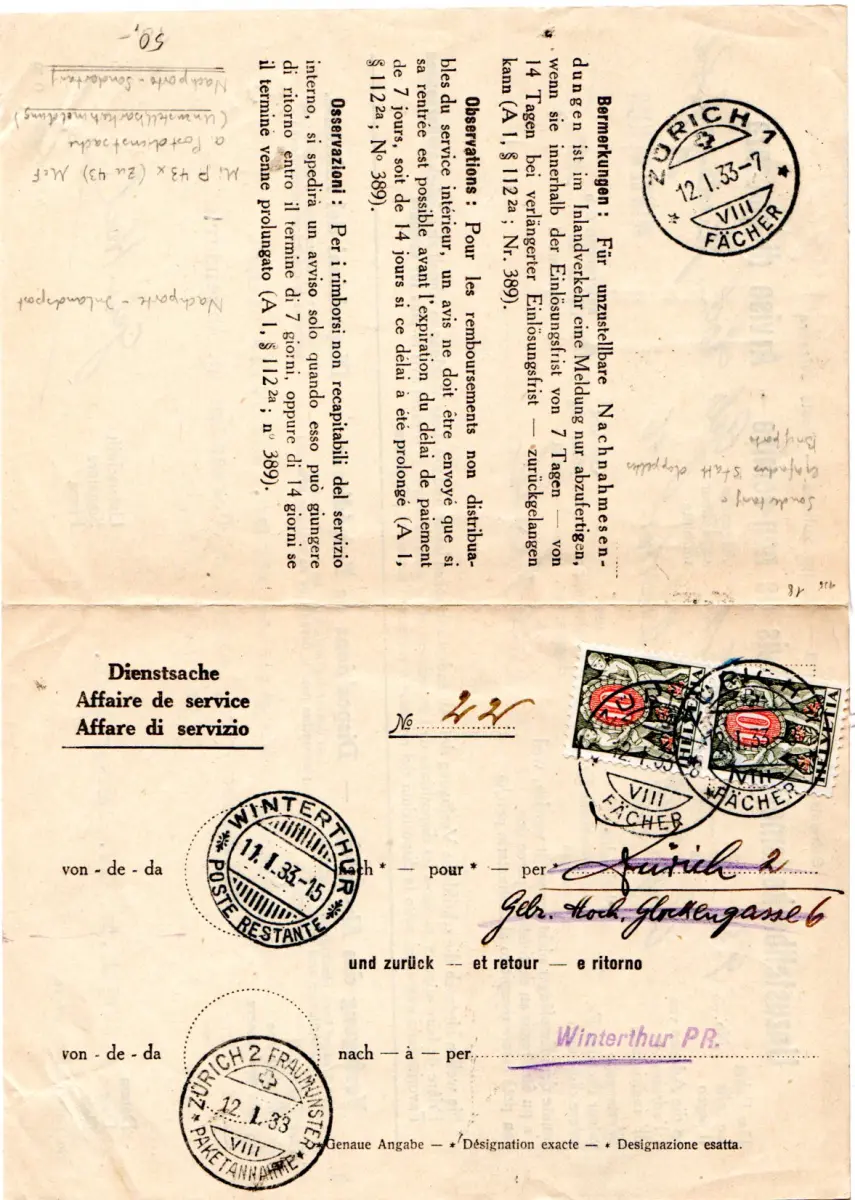 50,-
Nachporto - Sondertarif
(Unzustellbarkeitsmeldung)
a Postdienstsache
Nachporto - Inlandspost
Bemerkungen: Für unzustellbare Nachnahmesen-
dungen ist im Inlandverkehr eine Meldung nur abzufertigen,
wenn sie innerhalb der Einlösungsfrist von 7 Tagen — von
14 Tagen bei verlängerter Einlösungsfrist — zurückgelangen
kann (A I, § 112 2a; Nr. 389).
Observations: Pour les remboursements non distribua-
bles du service intérieur, un avis ne doit être envoyé que si
sa rentrée est possible avant l'expiration du délai de paiement
de 7 jours, soit de 14 jours si ce délai a été prolongé (A I,
§ 112 2a; No 389).
Osservazioni: Per i rimborsi non recapitabili del servizio
interno, si spedirà un avviso solo quando esso può giungere
di ritorno entro il termine di 7 giorni, oppure di 14 giorni se
il termine venne prolungato (A I, § 112 2a; no 389).
ZÜRICH 1
12.I.33-7
VIII
FÄCHER
Sondertarif
Einfaches statt doppeltes
Briefporto
18
Dienstsache
Affaire de service
Affare di servizio
No 22
10
HELVETIA
10
HELVETIA
ZÜRICH 1
12.I.33
VIII
FÄCHER
ZÜRICH 1
VIII
FÄCHER
WINTERTHUR
11.I.33-15
POSTE RESTANTE
von - de - da
nach * — pour * — per * Zürich 2
Gebr. Hoch, Glockengasse 6
und zurück — et retour — e ritorno
von - de - da
ZÜRICH 2 FRAUMÜNSTER
12.I.33
VIII
PAKETANNAHME
nach — à — per Winterthur PR.
* Genaue Angabe — * Désignation exacte — * Designazione esatta.